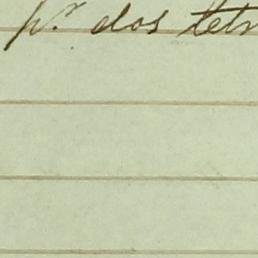 p.r dos tetr